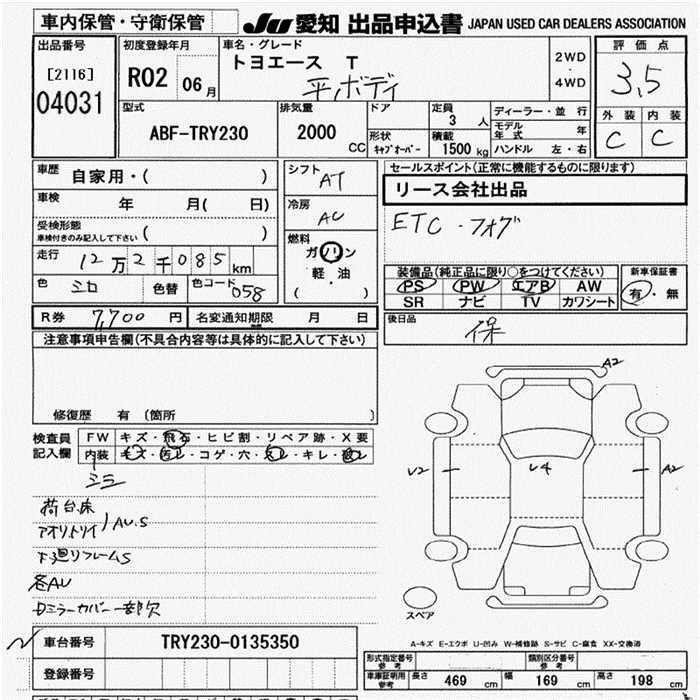 車内保管・守衛保管
JU 愛知 出品申込書 JAPAN USED CAR DEALERS ASSOCIATION
出品番号
[2116]
04031
初度登録年月
R02 06月
車名・グレード
トヨエース T
平ボディ
2WD
・
4WD
評価点
3.5
外装 内装
C C
型式
ABF-TRY230
排気量
2000 CC
ドア
形状
キャブオーバー
定員
3人
積載
1500kg
ディーラー・並行
モデル年式 年
ハンドル 左・右
車歴
自家用・( )
車検 年 月( 日)
受検形態
車検付きのみ記入して下さい ( )
走行 12万2千085km
色 シロ 色替 色コード 058
シフト AT
冷房 AC
燃料
ガソリン
軽・油
( )
セールスポイント(正常に機能するものに限ります)
リース会社出品
ETC・フォグ
装備品(純正品に限り○をつけてください)
PS PW エアB AW
SR ナビ TV カワシート
新車保証書
有・無
R券 7,700円 名変通知期限 月 日
後日品
保
注意事項申告欄(不具合内容等は具体的に記入して下さい)
修復歴 有 (箇所 )
検査員
記入欄
FW キズ・飛石・ヒビ割・リペア跡・X要
内装 キズ・汚レ・コゲ・穴・スレ・キレ・破レ
シミ
荷台床
アオリ、トリイ AU.S
下廻リフレームS
各AU
Dミラーカバー一部欠
A2
U2
U4
A2
スペア
A-キズ E-エクボ U-凹み W-補修跡 S-サビ C-腐食 XX-交換済
車台番号 TRY230-0135350
登録番号
形式指定番号
参考
類別区分番号
参考
車庫証明用
参考
長さ 469 cm 幅 169 cm 高さ 198 cm